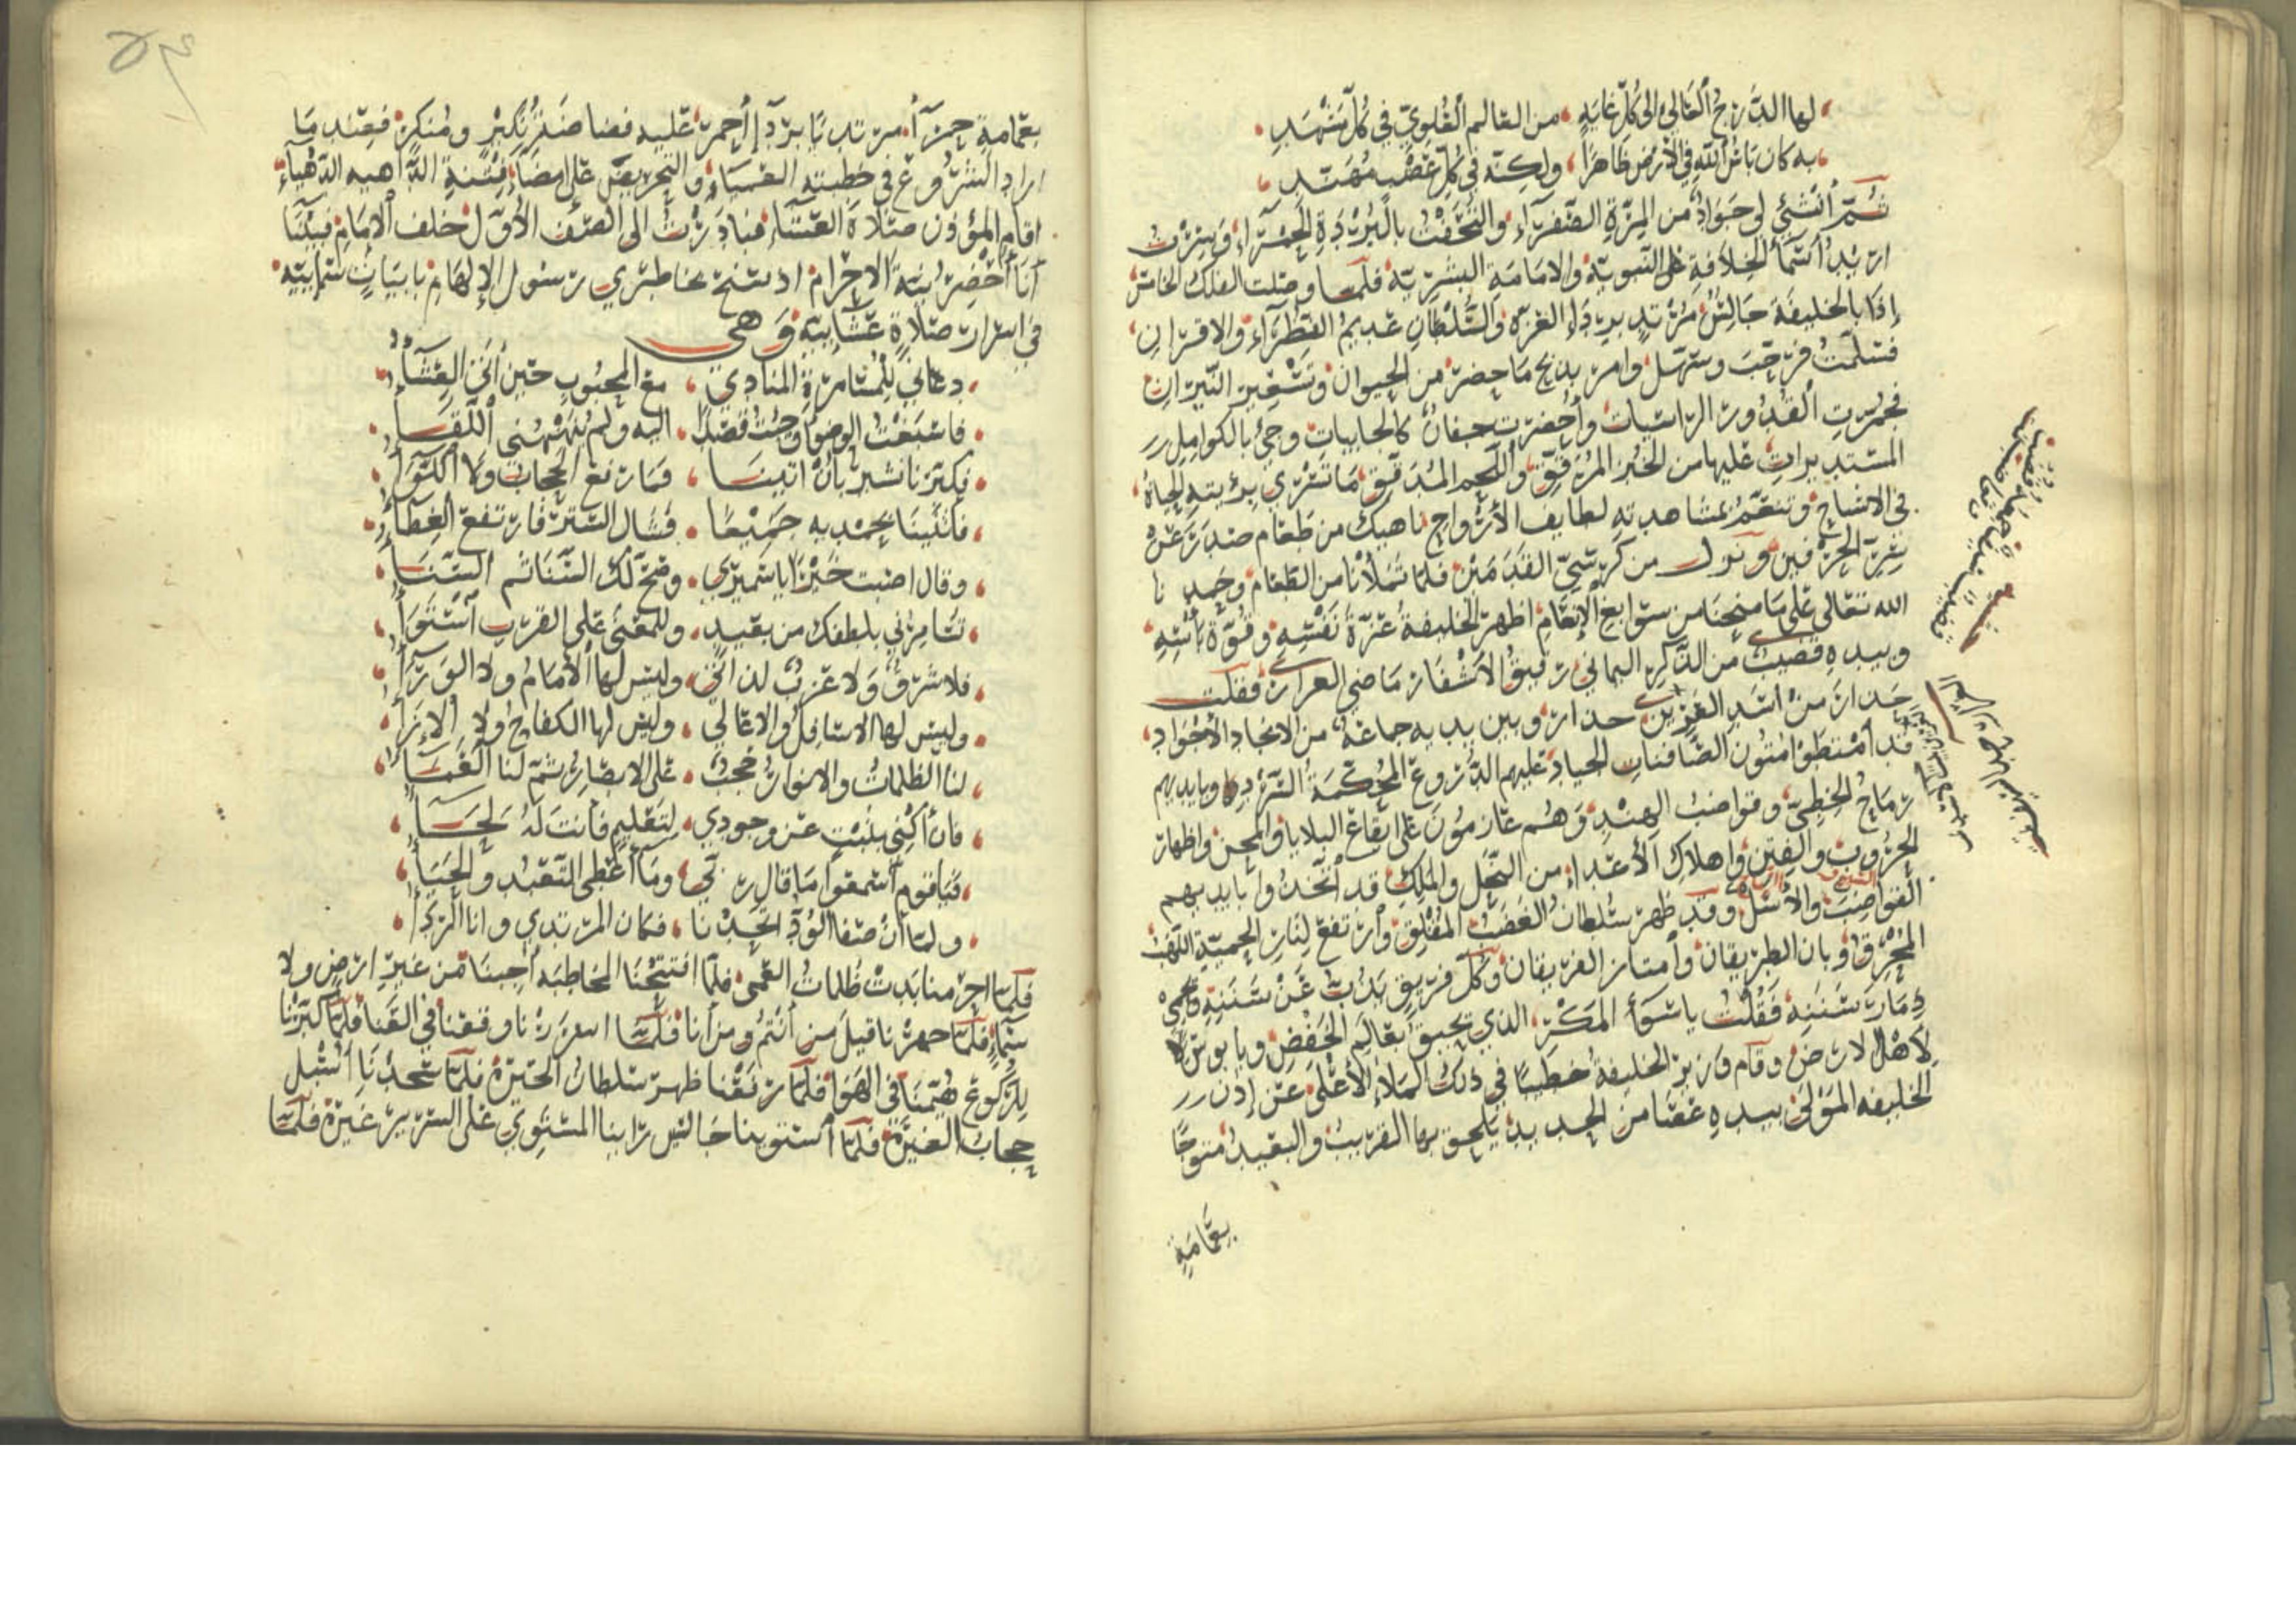 لها الدَّرَجُ العَالِي الى كُلِّ غايَةٍ من العَالم العُلْوِيِّ في كُلِّ مَشْهَدِ
به كان بَاسُ اللهِ في الأرْضِ ظاهرًا ولكنّه في كُلِّ عَضْبٍ مُهَنَّدِ
ثُمَّ أُنْشِئَ لي جَوَادٌ من المِرَّةِ الصَّفرَاء والتحَفْتُ بالبُرْدَةِ الحمْرَاء وَسِرْت
اريْدُ سَمَاء الخِلافَةِ النبويّة والامَامَةِ البشريّة فلمّا وصلت الفلك الخامس
إذا بالخليفَةِ جَالِسٌ مُرْتَدٍ بِرِدَاءِ العِزّة والسُّلْطَانِ عَديمُ النُّظَرَاء والاقرَانِ
فسَلّمْتُ فرَحّبَ وسَهّل وامَرَ بذبح ما حضر من الحيوان وتسْعير النّيرانِ
فعُمِرَتِ القُدُورُ الرّاسيات وأُحْضِرَت جفانٌ كالجابيات وجئ بالكوامل
المستديرات عليها من الخُبْز المُرَقّق واللّحم المُدَقّق مَا تَسْري بِرُؤْيته الحياةُ
في الاشباح وتتنعّمُ بمشاهدته لطايف الأرْواح ناهيك من طَعَام صَدَرَ عَنْ
من كُرسِيّ القَدَمَيْن فلمّا تملأنا من الطعَام وحَمِدنا
الله تعَالى على مَا منحنَا من سَوَابغ الإنعَام اظهر الخليفةُ عِزّةَ نَفْسِهِ وقُوّةَ بَأسِهِ
وبيدهِ قضيبٌ من الذّكر اليمَاني رَقيقُ الأشفار مَاضي الغرار فقُلت
حَذارَ مِنْ اسَدِ العَرِين حَذارَ وبين يديه جماعَةٌ من الانجاد الأجواد
قد امْتَطَوْا مُتُون الصَّافنات الجياد عليهم الدُّرُوع المُحْكَمَةُ السَّرْد وبايديهم
رِمَاحُ الخطّي وقواضبُ الهِنْدِ وَهُم عازمُونَ على ايقاع البلايا والمحن واظهار
الحرُوب والفتن واهلاك الأعداء من النِّحَل والمِلَل قد اتّخذُوا بايديهم
القواضِبَ والأسَل وقد ظهر سُلطانُ الغَضَبِ المُقْلِق وارتفع لِنَارِ الحمِيّةِ اللّهبُ
المُحْرق وبان الطريقان وامتاز الفريقان وكُلّ فريق يَذُبّ عَنْ سَنَنِهِ
فَقُلْتُ
لأهْل الارض وقام وزيرُ الخليفة خطيبًا في ذلك المَلأِ الأعْلى عَن إذن
الخليفه المَوْلى بيدهِ عَصًا من الحديد يلحق بها القريبَ والبعيدَ متوّجًا
بِعِمَامَةٍ
بعِمَامةٍ حمرَآء مرتديًا بردآءٍ أحمر عَليه فصاح فعند مَا
اراد الشُّرُوعَ في خطبته العَمياء والتحريض على امضَاءِ فِتْنةِ الدّاهيه الدّهْيَاء
اقامَ المؤذّن صَلاةَ العَشَاء فبادرْتُ الى الصّف الأوّل خلف الإمَامِ فبينَا
أنَا أُحْضِرُ نيّةَ الاحْرام اذ سَنَحَ بخاطِري رَسُولُ الإلهامِ بابياتٍ سَمَاييّة
في اسْرارِ صَلاةٍ عَشَاييّة وَهي
دعاني لِلْمُسَامَرةِ المنَادي مع المحبُوبِ حين أتى العِشَآءُ
فاسبَغْتُ الوضُوَ وجئتُ قصْدًا اليه ولم يُنَهْنهْني اللّقَآءُ
فكبّرنا نشير بأنْ اتينَا فمَا رُفِعَ الحجابُ ولا اللّوآءُ
فاثنينَا بحمْد به جميْعًا فشَال السّترَ فارتفع الغِطآءُ
وقال اصبت خَيْرًا يا سَميري وصَحّ لكَ السّنَا ثم السّنَآءُ
تسَامِرُني بلطفك من بعيدٍ وللمعنى على القرب استِوَآءُ
فلا شرقٌ ولا غربٌ لذاتي وليس لها الأمَامُ ولا الورَآءُ
وليس لها الاسَافِلُ والاعَالي وليس لها الكفاحُ ولا الإزَآءُ
لنا الظلماتُ والانوارُ حُجبٌ على الابصَارِ ثمّ لنا العَمَآءُ
فان أكنِي بلَيْتِ عن وجودي لتَعْليمٍ فأنتَ لَهُ لحَآءُ
فيَا قوم أسْمعُوا مَا قال ربّي ومَا أعْطى التّعَبُّد والحَيَآءُ
ولمّا أنْ صَفا الوُدّ اتّحدْنا فكان المرتدي وانا الرّدَآءُ
فلمّا احرمنا بَدتْ ظُلماتُ العَمَى فلمّا افتتحْنَا المخاطبَة أُجبنَا من غير ارضٍ ولا
سَمَاءٍ فلمّا جهرْنا قيل من انتُم ومن أنا فلمّا اسررْنا وقعنا في العَنا فلمّا كبّرْنا
للرُّكُوعِ هُيّمنَا في الهَوَا فلمّا رَفعْنا ظهر سُلطانُ الحيرة فلمّا سَجَدْنَا أُسْبلَ
حجابُ الغيرَة فلمّا أستوينا جَالسين رأينا المستَوِي على السّرير غيرَهُ فلمّا